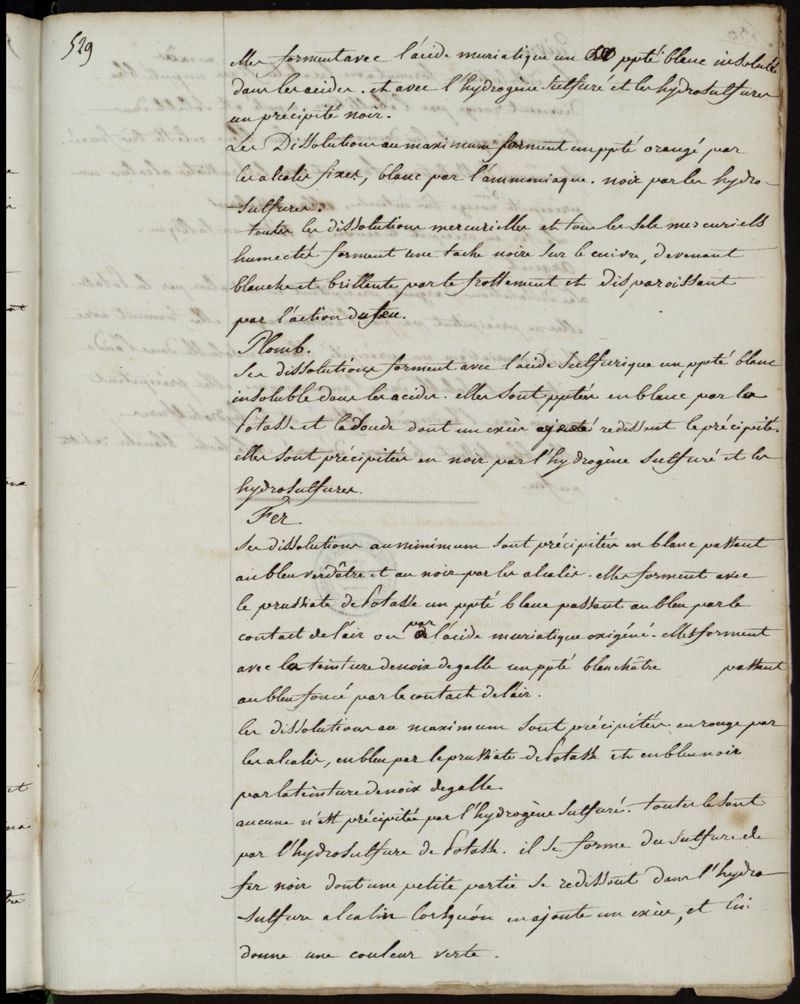 529
elles forment avec l'acide muriatique un ppté blanc insoluble
dans les acides. et avec l'hydrogène sulfuré et les hydrosulfures
un précipité noir.
Les Dissolutions au maximum forment un ppté orangé par
les alcalis fixes, blanc par l'ammoniaque. noir par les hydro-
-sulfures.
toutes les dissolutions mercurielles et tous les sels mercuriels
humectés forment une tache noire sur le cuivre, devenant
blanche et brillente par le frottement et disparoissant
par l'action du feu.
Plomb.
Ses dissolutions forment avec l'acide sulfurique un ppté blanc
insoluble dans les acides. elles sont pptées en blanc par la
Potasse et la Soude dont un excès ajouté redissout le précipité.
elles sont précipitées en noir par l'hydrogène sulfuré et les
hydrosulfures.
Fer
Ses dissolutions au minimum sont précipitées en blanc passant
au bleu verdâtre et au noir par les alcalis. elles forment avec
le prussiate de Potasse un ppté blanc passant au bleu par le
contact de l'air ou par l'acide muriatique oxigéné. elles forment
avec la teinture de noix de galle un ppté blanchâtre passant
au bleu foncé par le contact de l'air.
les dissolutions au maximum sont précipitées en rouge par
les alcalis, en bleu par le prussiate de Potasse et en bleu noir
par la teinture de noix de galle
aucune n'est précipitée par l'hydrogène sulfuré. toutes le sont
par l'hydrosulfure de Potasse. il se forme du sulfure de
fer noir dont une petite partie se redissout dans l'hydro
-sulfure alcalin lorsqu'on en ajoute un excès, et lui
donne une couleur verte.